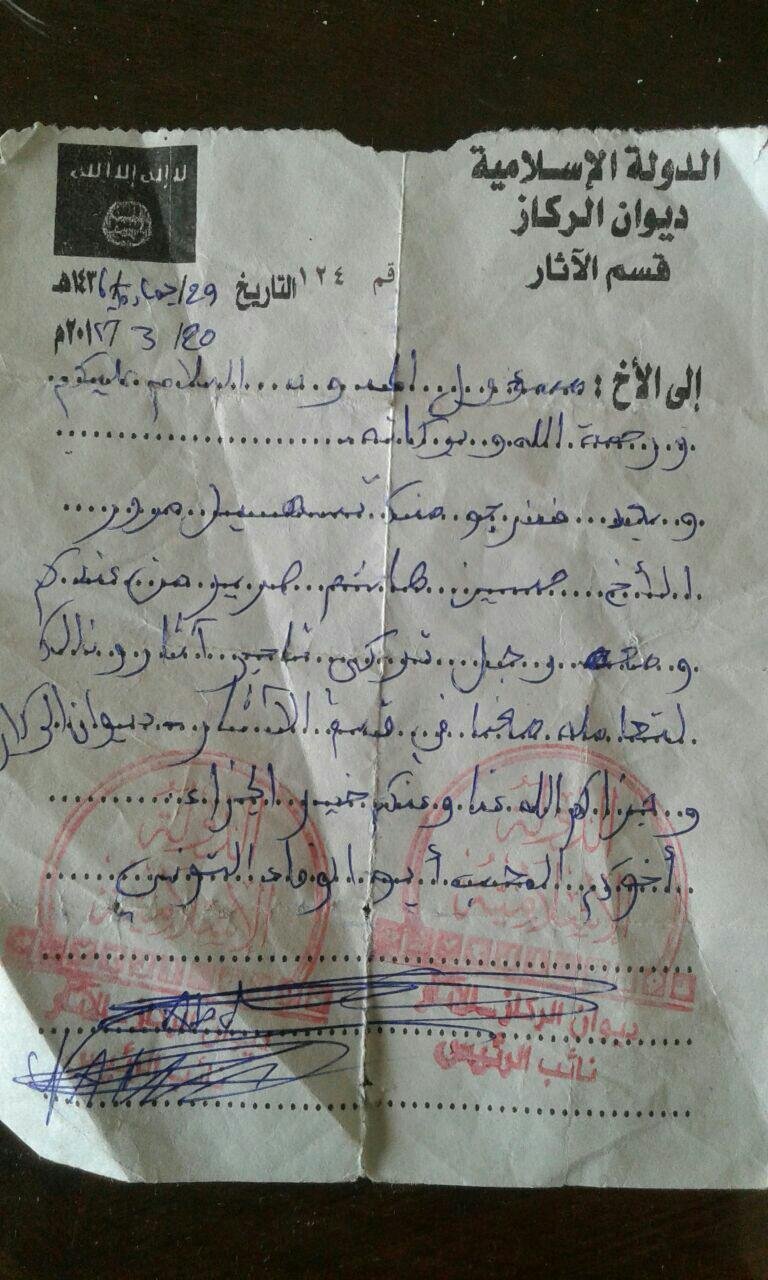 الدولة الإسلامية
ديوان الركاز
قسم الآثار
لا إله إلا الله
قم ١٢٤
التاريخ 29/ ١٤٣٦هـ
20/ 3 م
إلى الأخ : مسؤول السلام عليكم
ورحمة الله وبركاته
وبعد فنرجو منك تسهيل مرور
الأخ حسين من عندكم
ومعه رجل تركي تاجر آثار وذالك
لتعامله معنا في قسم الآثار ديوان الركاز
وجزاكم الله عنا وعنكم خير الجزاء
أخوكم المحب أبو الوفاء التونسي
الدولة
الإسلامية
الدولة
الإسلامية
ديوان الركاز
نائب الرئيس